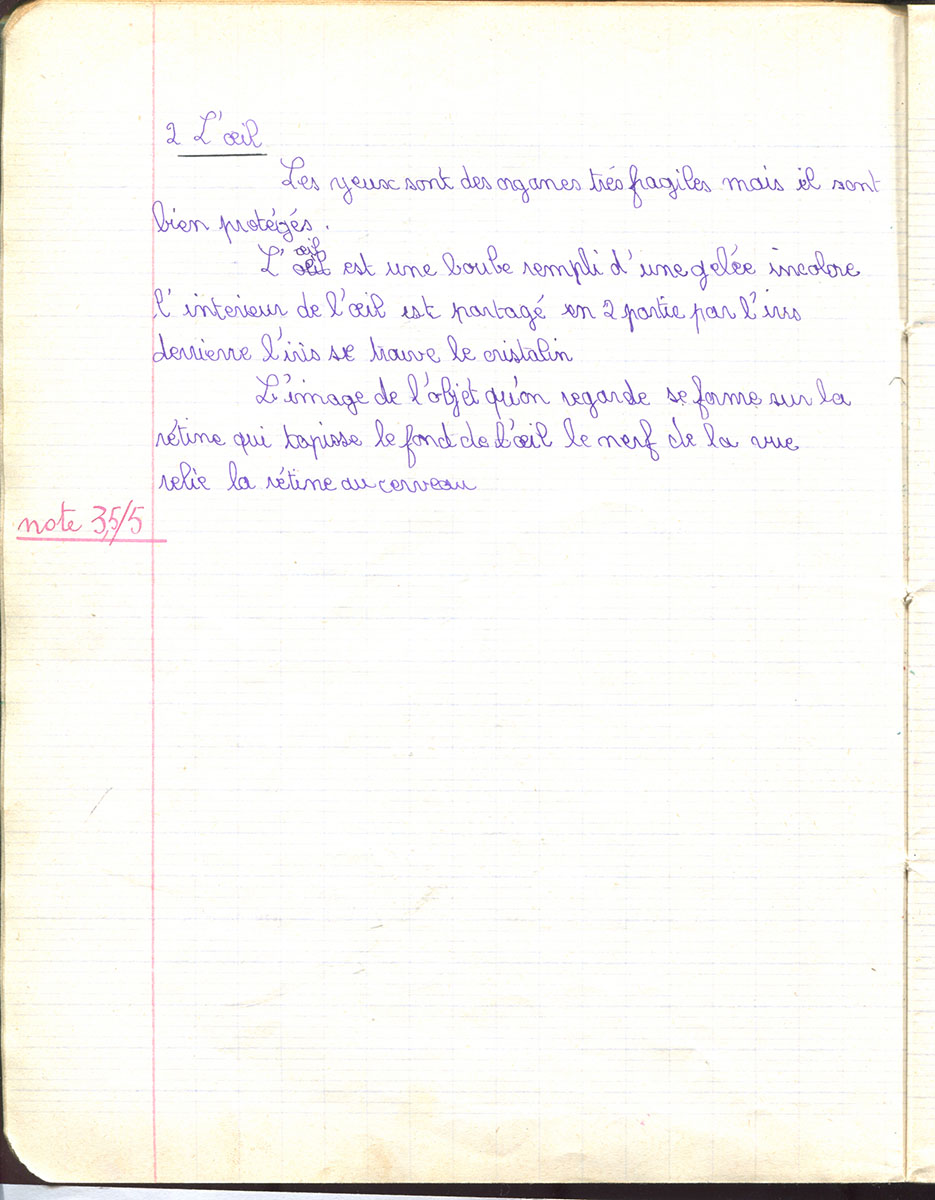 2 L'œil
Les yeux sont des organes trés fragiles mais il sont
bien protégés.
œil
L'œil est une boube rempli d'une gelée incolore
l'interieur de l'œil est partagé en 2 partie par l'iris
derrierre l'iris se trouve le cristalin
L'image de l'objet qu'on regarde se forme sur la
rétine qui tapisse le fond de l'œil le nerf de la vue
relie la rétine au cerveau
note 3,5/5